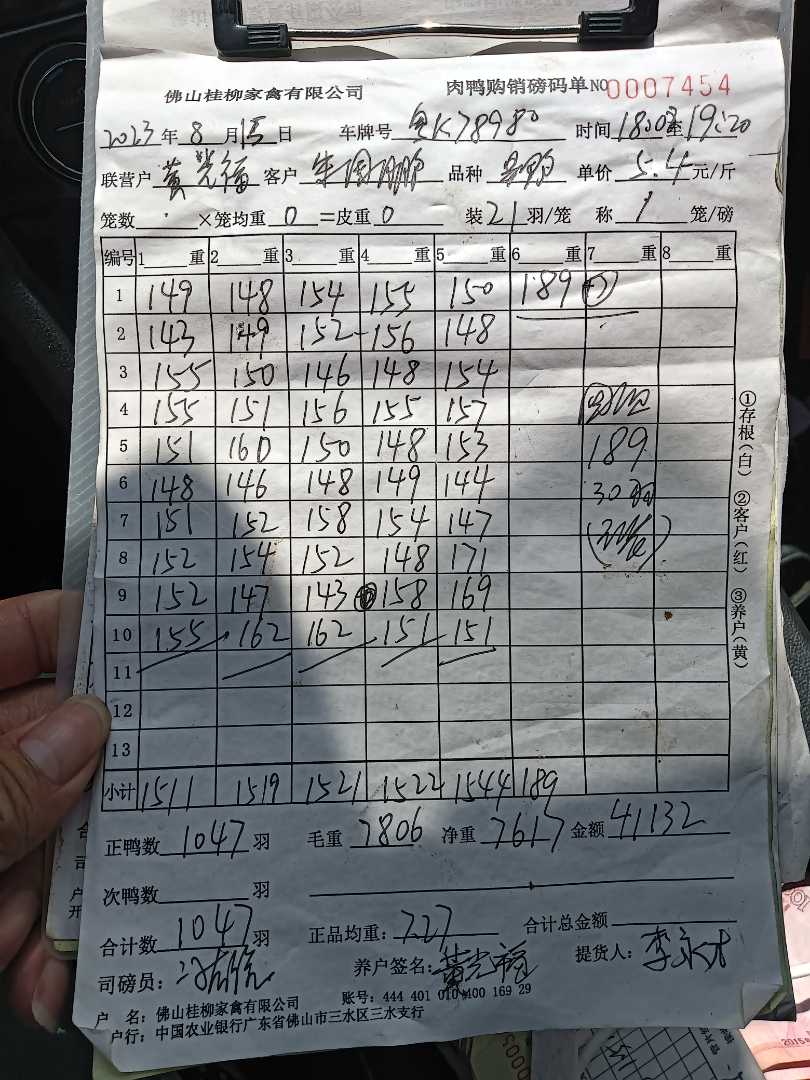 佛山桂柳家禽有限公司 肉鸭购销磅码单 NO 0007454
2023年8月15日 车牌号 K78980 时间18:00至19:20
联营户 黄光福 客户 朱国鹏 品种 单价 5.4 元/斤
笼数 ×笼均重 0 =皮重 0 装21羽/笼 称 1 笼/磅
编号 1 重 2 重 3 重 4 重 5 重 6 重 7 重 8 重
1 149 148 154 155 150 189
2 143 149 152 156 148
3 155 150 146 148 154
4 155 151 156 155 157
5 151 160 150 148 153 189
6 148 146 148 149 144 30羽
7 151 152 158 154 147
8 152 154 152 148 171
9 152 147 143 158 169
10 155 162 162 151 151
11
12
13
小计 1511 1519 1521 1522 1544 189
正鸭数 1047 羽 毛重 7806 净重 7617 金额 41132
次鸭数 羽
合计数 1047 羽 正品均重: 727 合计总金额
司磅员: 养户签名: 黄光福 提货人: 李永才
户 名: 佛山桂柳家禽有限公司 账号: 444 401 010 400 169 29
户行: 中国农业银行广东省佛山市三水区三水支行
①存根(白) ②客户(红) ③养户(黄)